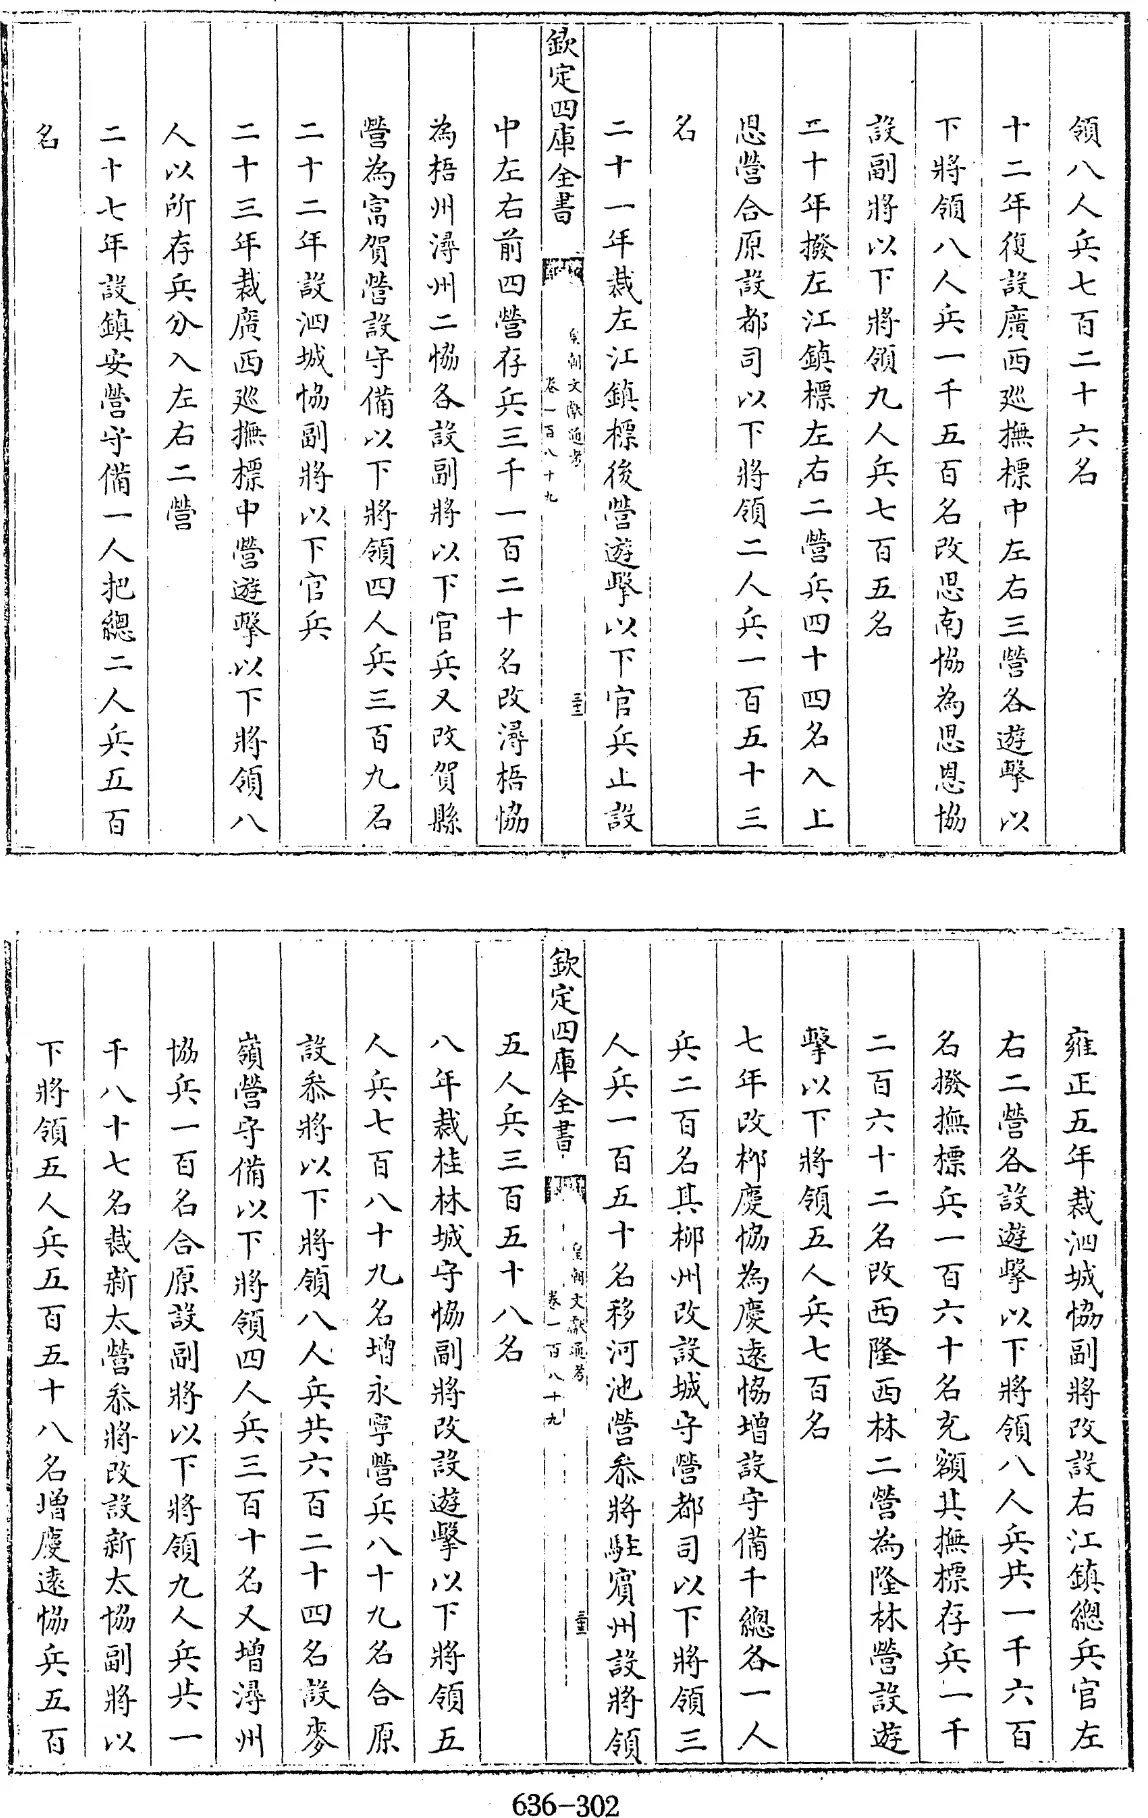 領八人兵七百二十六名
十二年復設廣西巡撫標中左右三營各遊擊以
下將領八人兵一千五百名改思南協為思恩協
設副將以下將領九人兵七百五名
二十年撥左江鎮標左右二營兵四十四名入上
思營合原設都司以下將領二人兵一百五十三
名
二十一年裁左江鎮標後營遊擊以下官兵止設
欽定四庫全書
皇朝文獻通考
卷一百八十九
中左右前四營存兵三千一百二十名改潯梧協
為梧州潯州二協各設副將以下官兵又改賀縣
營為富賀營設守備以下將領四人兵三百九名
二十二年設泗城協副將以下官兵
二十三年裁廣西巡撫標中營遊擊以下將領八
人以所存兵分入左右二營
二十七年設鎮安營守備一人把總二人兵五百
名
雍正五年裁泗城協副將改設右江鎮總兵官左
右二營各設遊擊以下將領八人兵共一千六百
名撥撫標兵一百六十名充額其撫標存兵一千
二百六十二名改西隆西林二營為隆林營設遊
擊以下將領五人兵七百名
七年改柳慶協為慶遠協增設守備千總各一人
兵二百名其柳州改設城守營都司以下將領三
人兵一百五十名移河池營叅將駐賓州設將領
欽定四庫全書
皇朝文獻通考
卷一百八十九
五人兵三百五十八名
八年裁桂林城守協副將改設遊擊以下將領五
人兵七百八十九名增永寧營兵八十九名合原
設叅將以下將領八人兵共六百二十四名設麥
嶺營守備以下將領四人兵三百十名又增潯州
協兵一百名合原設副將以下將領九人兵共一
千八十七名裁新太營叅將改設新太協副將以
下將領五人兵五百五十八名增慶遠協兵五百
636-302